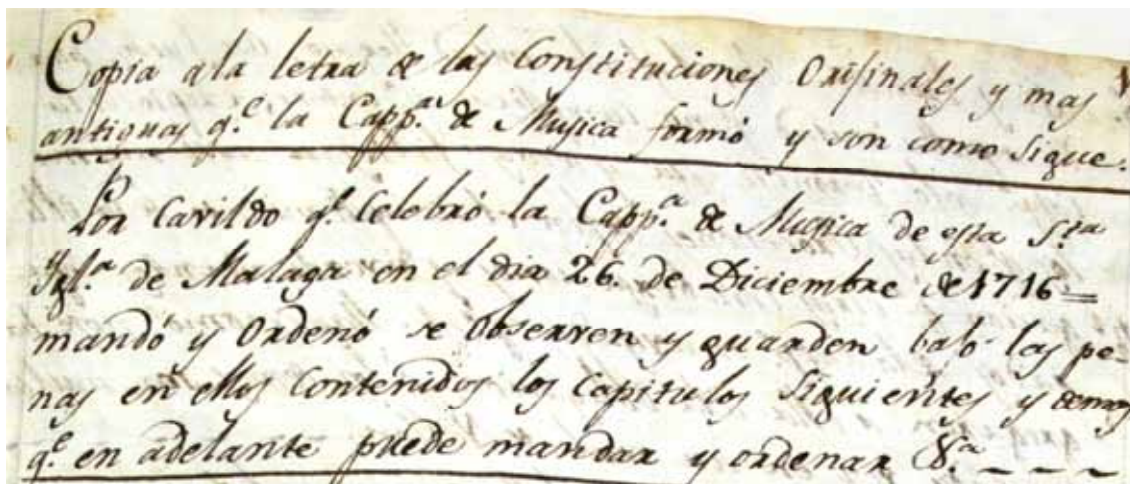 Copia ala letra de las Constituciones Orijinales y mas
antiguas q.e la Capp.a de Musica formó y son como sigue.
Por Cavildo q.e Celebró la Capp.a de Musica de esta S.ta
Ygl.a de Malaga en el dia 26. de Diciembre de 1716=
mandó y Ordenó se Observen y guarden baโอ las pe-
nas en ellos Contenidos los Capitulos Siguientes y demas
q.e en adelante puede mandar y ordenar &.a - - -